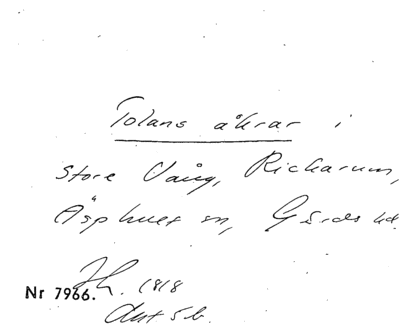 Tolans åkrar i
Store Vång, Rickarum,
Äsphult sn, Gärds hd.
Jh. 1818
Nr 7966.
Akt 5b.